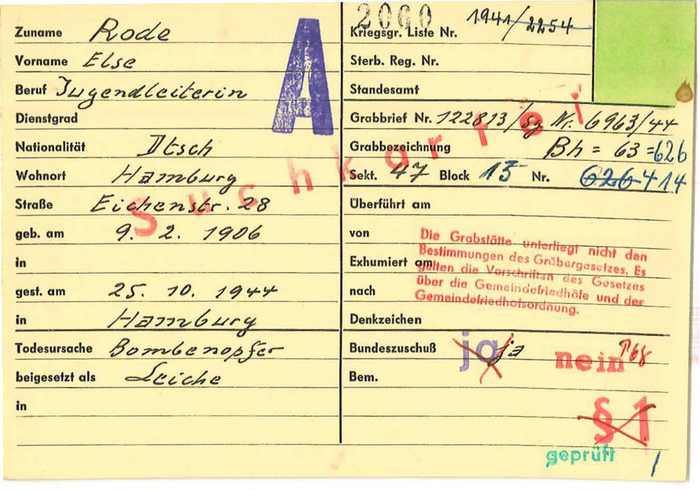 Zuname Rode
Vorname Else
Beruf Jugendleiterin
Dienstgrad
Nationalität Dtsch
Wohnort Hamburg
Straße Eichenstr. 28
geb. am 9. 2. 1906
in
gest. am 25. 10. 1944
in Hamburg
Todesursache Bombenopfer
beigesetzt als Leiche
in
A
Suchkortei
2060
Kriegsgr. Liste Nr. 1941/2254
Sterb. Reg. Nr.
Standesamt
Grabbrief Nr. 122813/Sg Nr. 6963/44
Grabbezeichnung Bh = 63 = 626
Sekt. 47 Block 13 Nr. 626 414
Überführt am
von
Exhumiert am
nach
Die Grabstätte unterliegt nicht den
Bestimmungen des Gräbergesetzes. Es
gelten die Vorschriften des Gesetzes
über die Gemeindefriedhöfe und der
Gemeindefriedhofsordnung.
Denkzeichen
Bundeszuschuß ja ja nein
Bem.
§ 1
geprüft